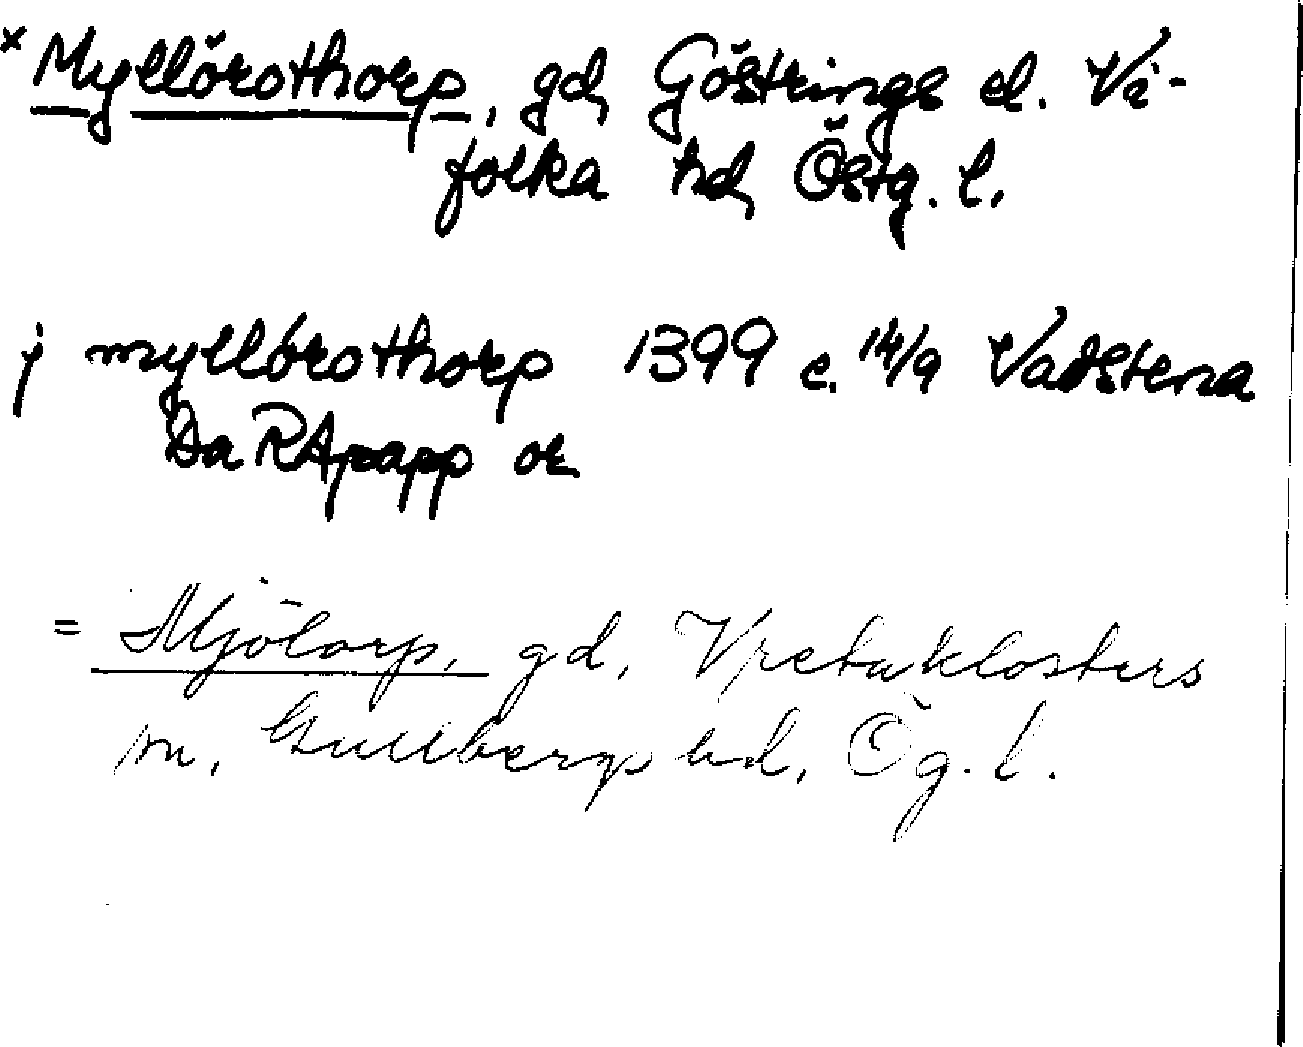 × Myllörothorp, gd, Göstrings el. Vi-
folka hd, Östg. l.
j myllörothorp 1399 e. 14/9 Vadstena
Da RApapp or
= Mjölorp, gd, Vretaklosters
sn, Gullbergs hd, Ög. l.